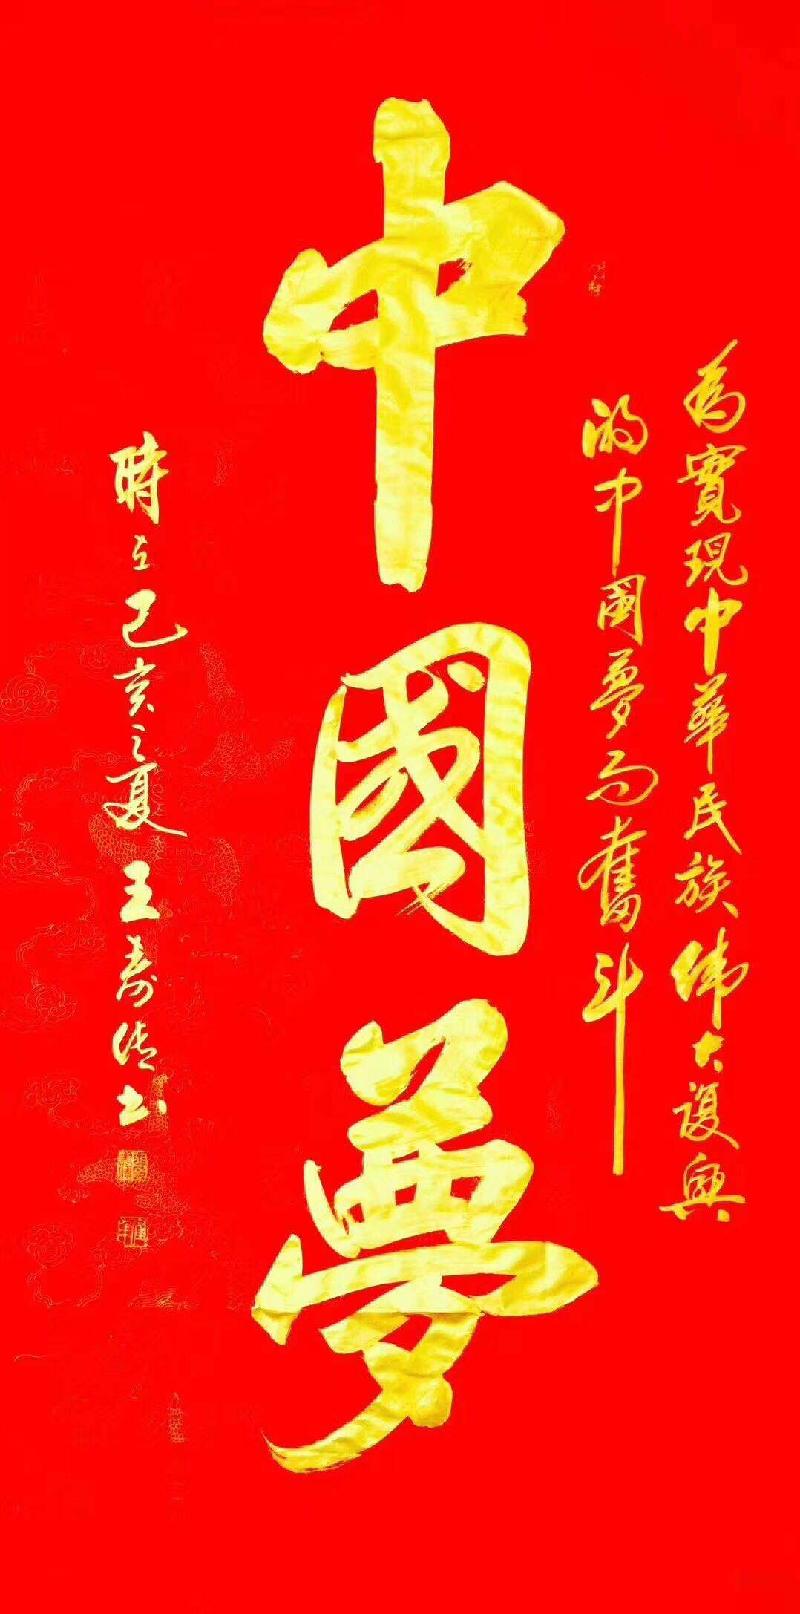 為實現中華民族偉大復興
的中國夢而奮斗
中國夢
時在己亥之夏王壽
書